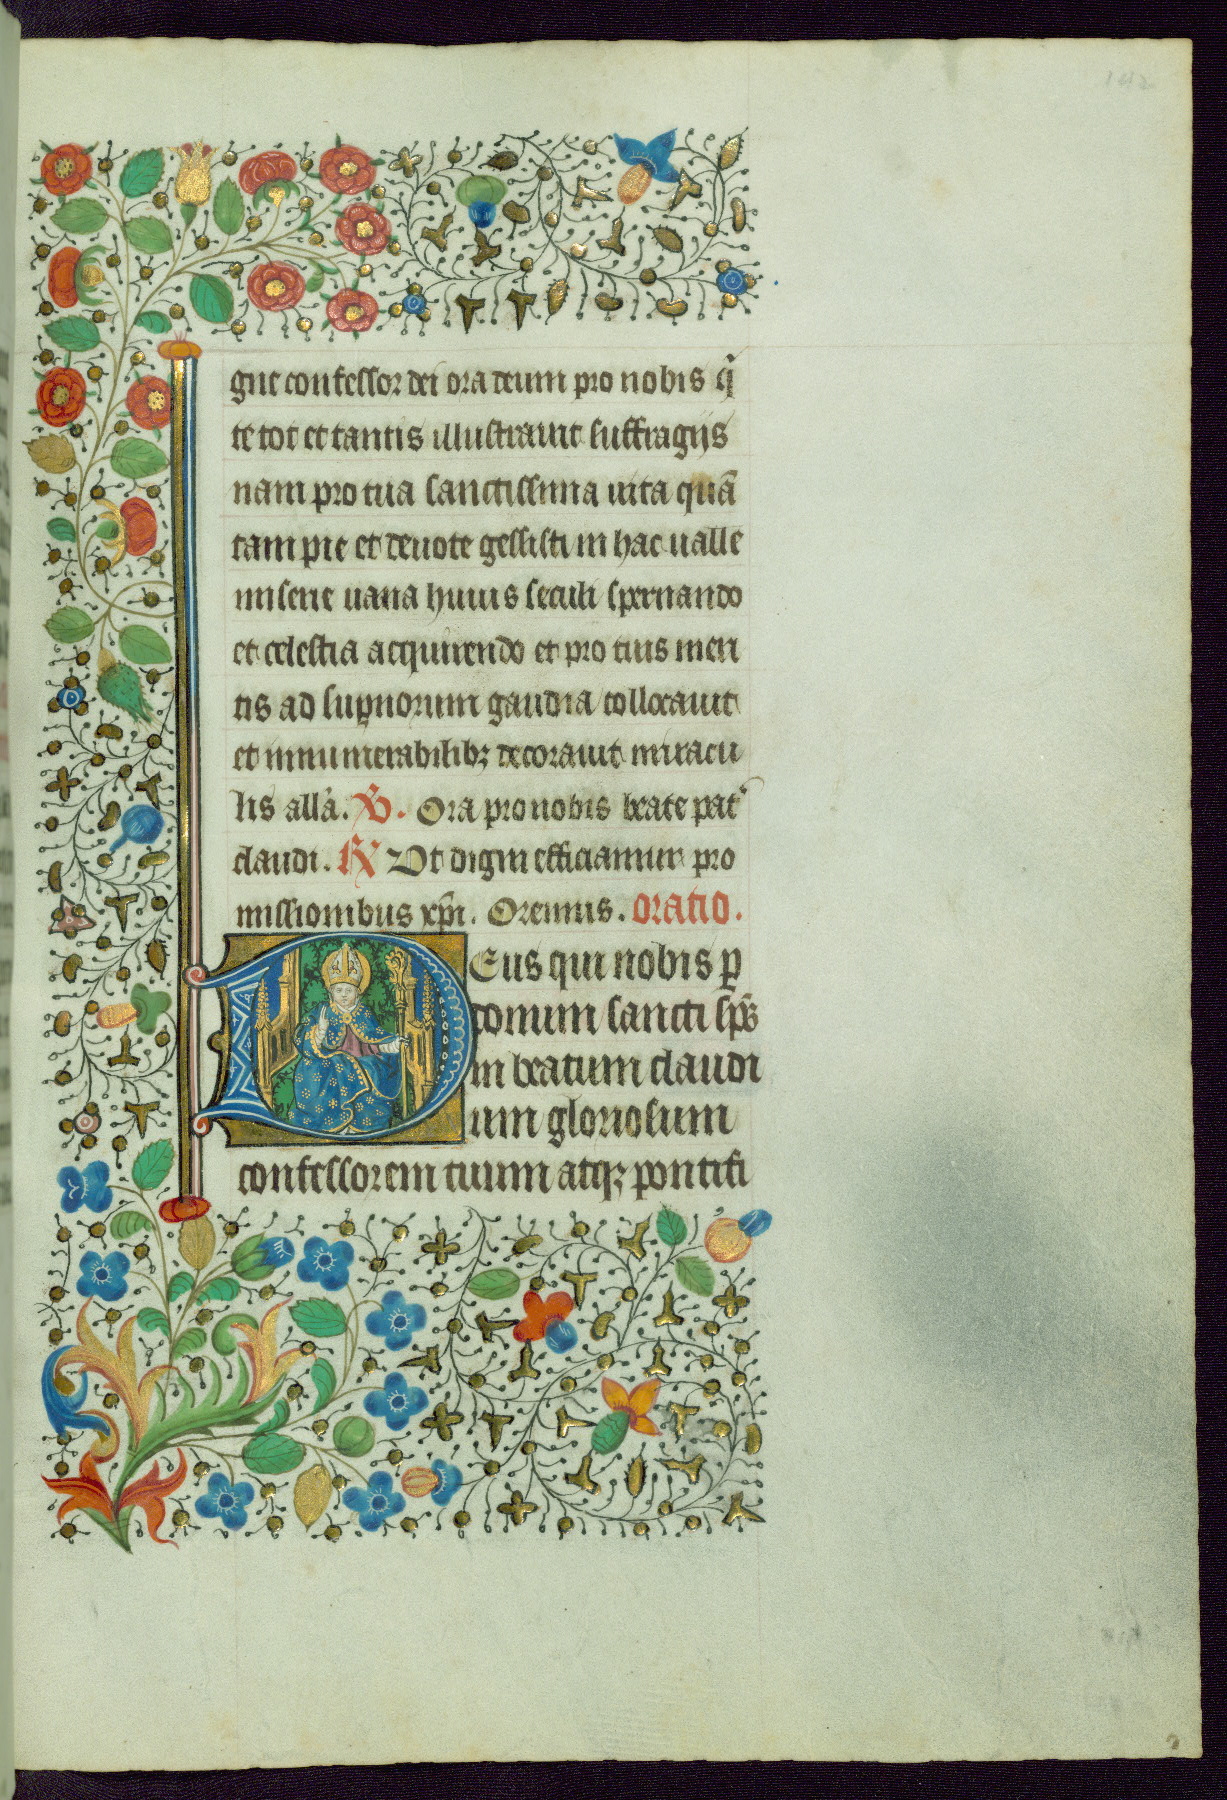 142
gne confessor dei ora deum pro nobis qͥ
te tot et tantis illustrauit suffragijs
nam pro tua sanctissima uita quā
tam pie et deuote gessisti in hac ualle
miserie uana huius seculi spernando
et celestia acquirendo et pro tuis meri
tis ad suꝑnorum gaudia collocauit
et innumerabilibꝫ decorauit miracu
lis all'a. V. Ora pro nobis beate pat'
claudi. R Vt digni efficiamur pro
missionibus xp̄i. Oremus. oratio.
Deus qui nobis ꝑ
donum sancti sp̄s
in beatum claudi
um gloriosum
confessorem tuum atqꝫ pontifi